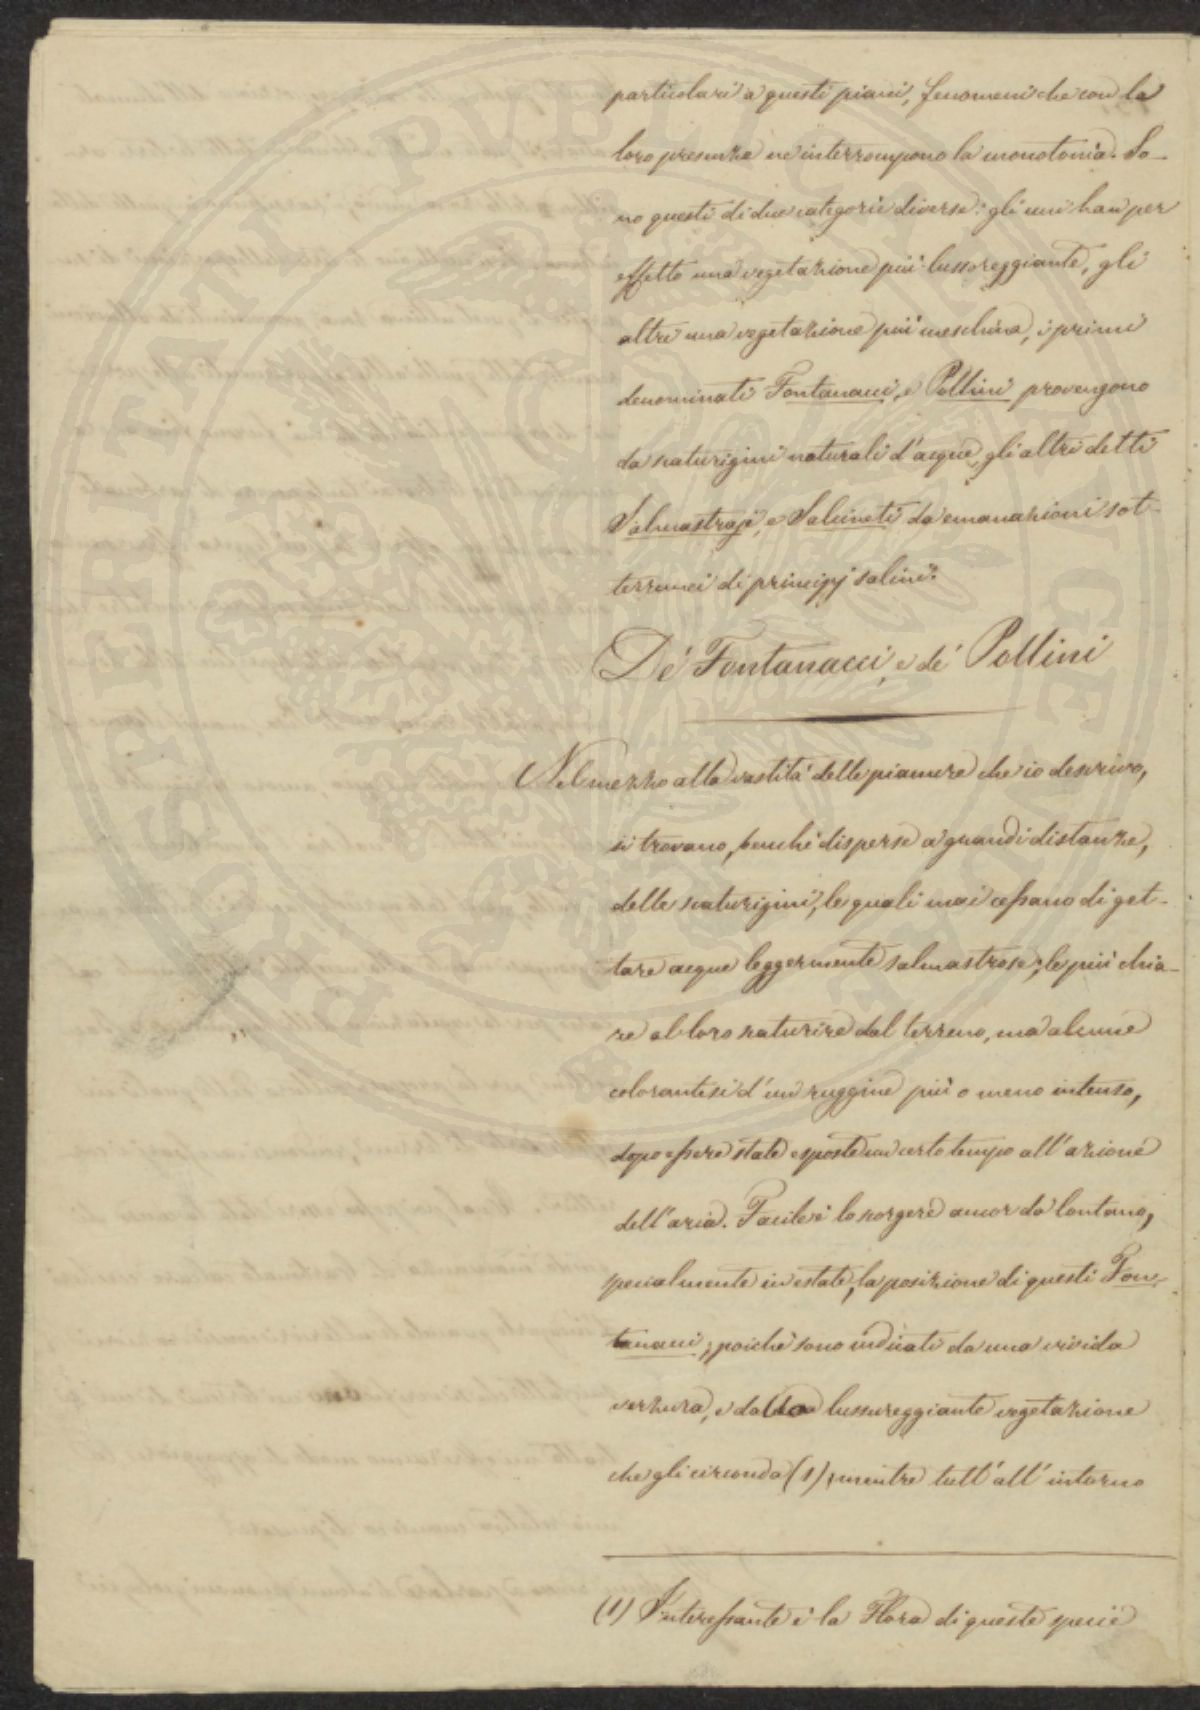 particolari a questi piani, fenomeni che con la
loro presenza ne interrompono la monotonia. So-
no questi di due categorie diverse: gli uni han per
effetto una vegetazione più lussoreggiante, gli
altri una vegetazione più meschina, i primi
denominati Fontanacci, e Pollini provengono
da scaturigini naturali d'acque, gli altri detti
Salmastraje, e Salcineti da emanazioni sot-
terranei di principj salini.
De' Fontanacci, e de' Pollini
Nel mezzo alla vastità delle pianure che io descrivo,
si trovano, benchè disperse a grandi distanze,
delle scaturigini, le quali mai cessano di get-
tare acque leggermente salmastrose; le più chia-
re al loro scaturire dal terreno, ma alcune
colorantesi d'un ruggine più o meno intenso,
dopo essere state esposte un certo tempo all'azione
dell'aria. Facile è lo scorgere ancor da lontano,
specialmente in estate, la posizione di questi Fon-
tanacci; poichè sono indicati da una vivida
verzura, e dalla lussureggiante vegetazione
che gli circonda (1); mentre tutt'all'intorno
(1) Interessante è la Flora di queste specie
PROSPERITATI PUBLICAE AUGENDAE